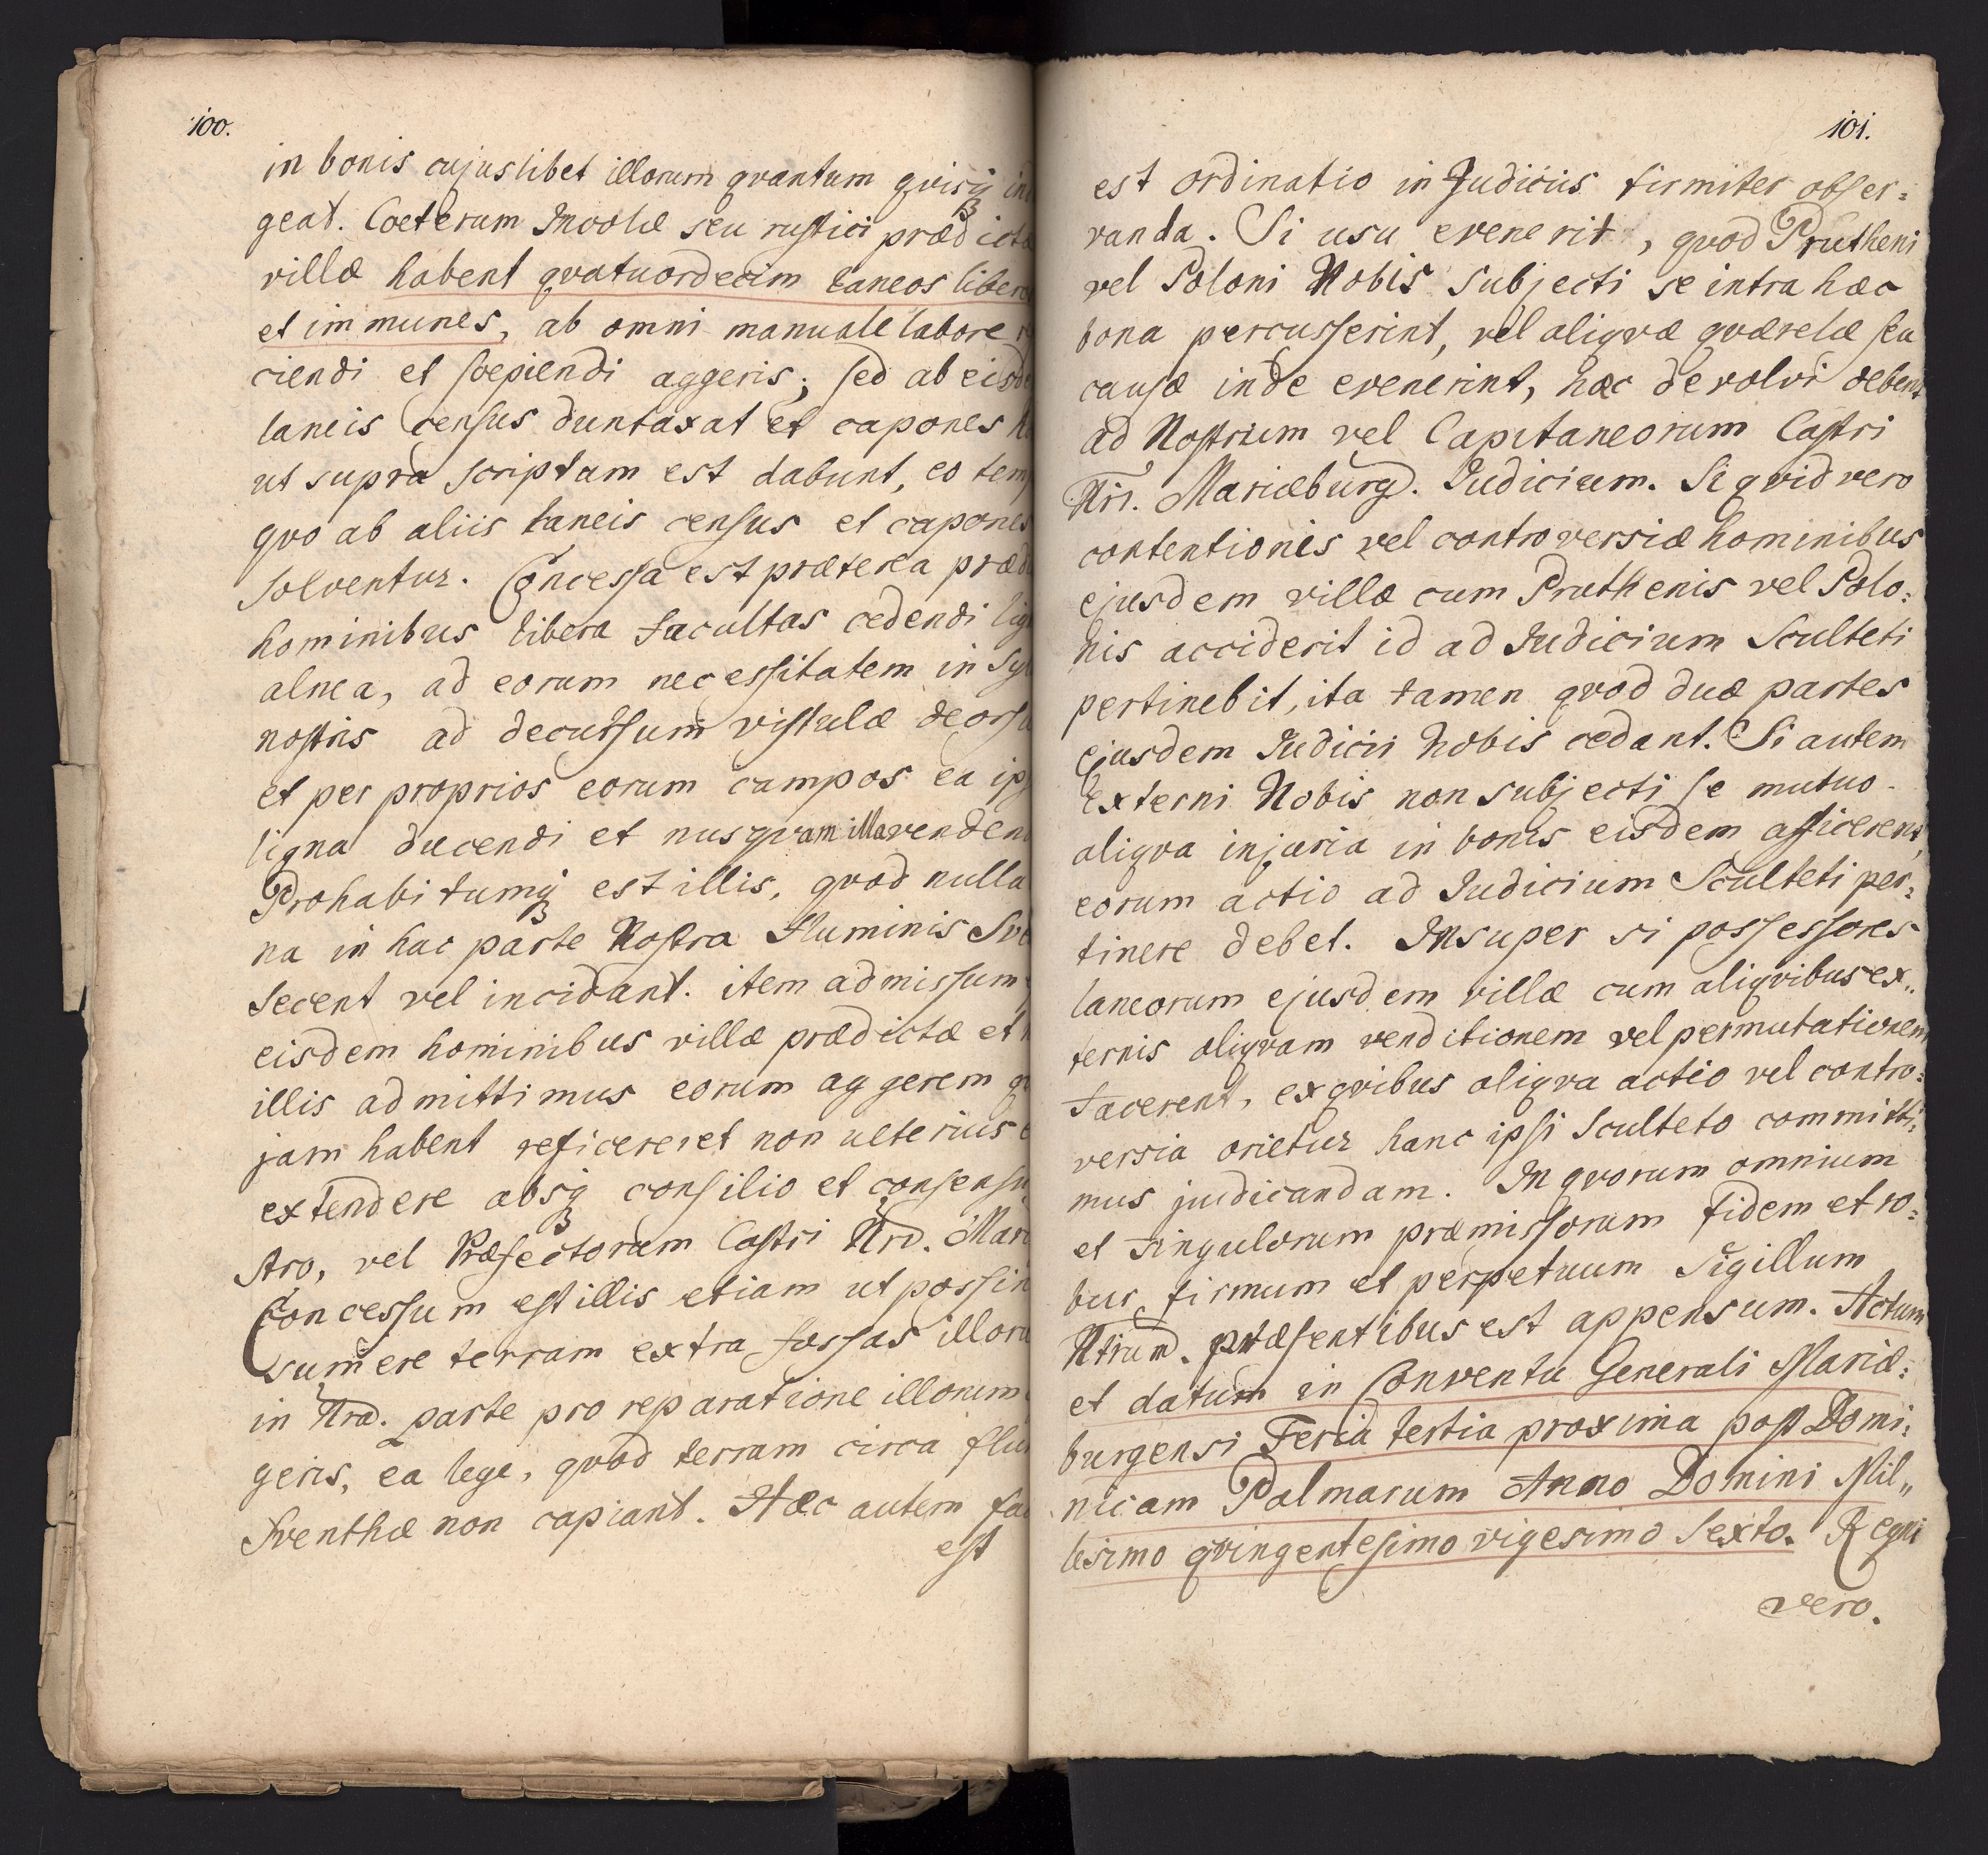 100.
in bonis cujuslibet illorum qvantum qvisq₃
geat. Coeterum Incolæ seu rustici prædictæ
villæ habent qvatuordecim laneos liberos
et immunes, ab omni manuale labore
ciendi et sœpiendi aggeris; sed ab eisde
laneis census duntaxat et capones
ut supra scriptum est dabunt, eo temp
qvo ab aliis laneis census et capones
solventur. Concessa est præterea præd
hominibus libera facultas cedendi lig
alnea, ad eorum necessitatem in Syl
nostris ad decursum vistulæ deorsu
et per proprios eorum campos ea ips
ligna ducendi et nusqvam illa vendend
Prohabitumq₃ est illis, qvod nulla
na in hac parte Nostra Fluminis Sve
Secent vel incidant. item admissum
eisdem hominibus villæ prædictæ et
illis admittimus eorum aggerem q
jam habent reficere et non ulterius
extendere absq₃ consilio et consensu
stro, vel Præfectorum Castri Nrō. Mari
Concessum est illis etiam ut possin
sumere terram extra fossas illoru
in Nrā. parte pro reparatione illorum
geris, ea lege, qvod terram circa flu
Sventhæ non capiant. Hæc autem
est
101.
est ordinatio in Judiciis firmiter obser=
vanda. Si usu evenerit, qvod Prutheni
vel Poloni Nobis subjecti se intra hæc
bona percusserint, vel aliqvæ qværelæ seu
causæ inde evenerint, hæc devolvi debent
ad Nostrum vel Capitaneorum Castri
Nri. Mariæburg. Iudicium. Si qvid vero
contentionis vel controversiæ hominibus
ejusdem villæ cum Pruthenis vel Polo=
nis acciderit id ad Iudicium Sculteti
pertinebit, ita tamen qvod duæ partes
ejusdem Iudicii Nobis cedant. Si autem
Externi Nobis non subjecti se mutuo
aliqva injuria in bonis eisdem afficerent,
eorum actio ad Iudicium Sculteti per=
tinere debet. Insuper si possessores
laneorum ejusdem villæ cum aliqvibus ex=
ternis aliqvam venditionem vel permutationem
facerent, ex qvibus aliqva actio vel contro=
versia orietur hanc ipsi Sculteto committi=
mus judicandam. In qvorum omnium
et singulorum præmissorum fidem et ro=
bur firmum et perpetuum Sigillum
Ntrum. præsentibus est appensum. Actum
et datum in Conventu Generali Mariæ=
burgensi Feria tertia proxima post Domi=
nicam Palmarum Anno Domini Mil=
lesimo qvingentesimo vigesimo Sexto. Regni
vero.